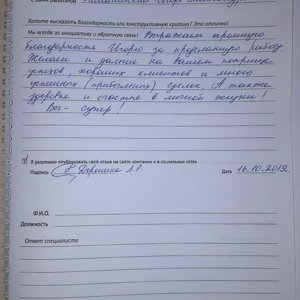 Хотите высказать благодарность или конструктивную критику? Это отлично!
Мы всегда за инициативу и обратную связь! Выражаем огромную
благодарность Игорю за проделанную работу.
Желаем и дальше на вашем поприще
успехов, хороших клиентов и много
успешных (прибыльных) сделок. А также
здоровья и счастья в личной жизни!
Вы - супер!
Я разрешаю опубликовать свой отзыв на сайте компании и в социальных сетях
Подпись Л.Р. Дата 16.10.2019г.
Ф.И.О.
Должность
Ответ специалиста